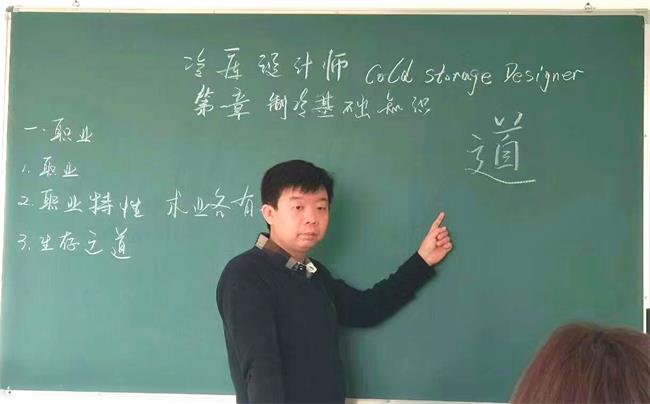 冷库设计师 Cold storage Designer
第一章 制冷基础知识
一.职业
1.职业
2.职业特性 术业各有
3.生存之道
道